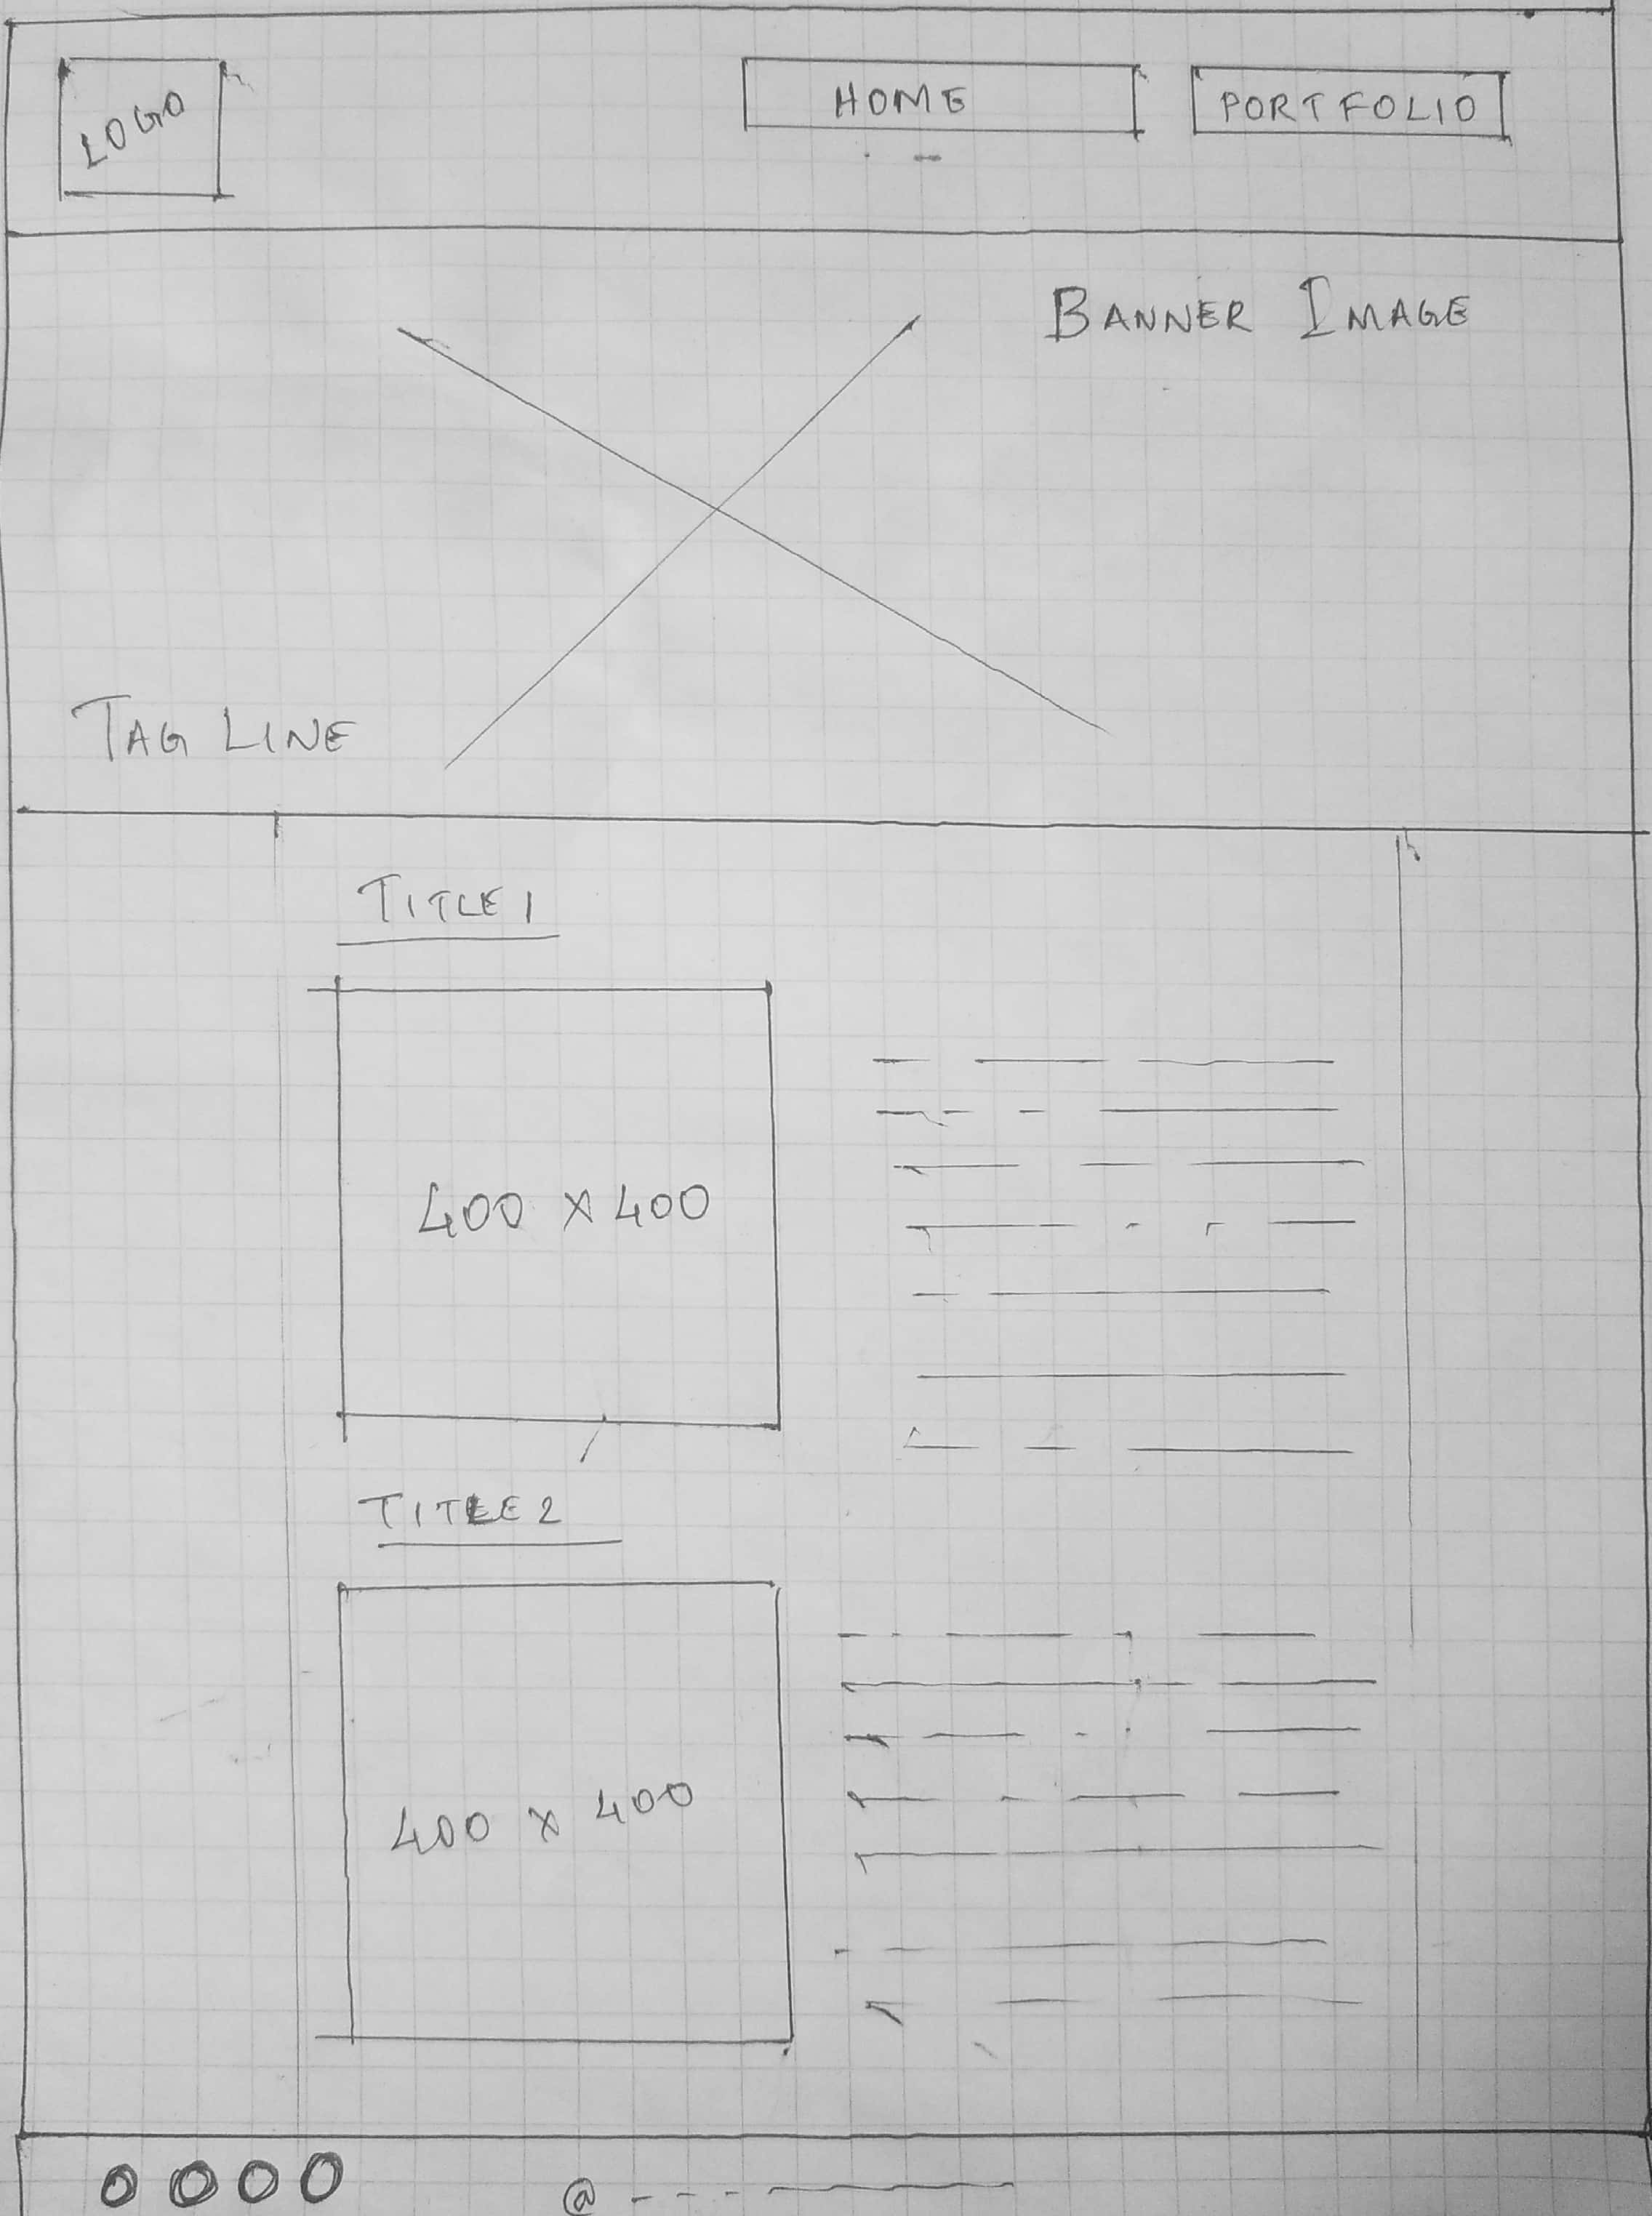 LOGO
HOME
PORTFOLIO
BANNER IMAGE
TAG LINE
TITLE 1
400 X 400
TITLE 2
400 X 400
@